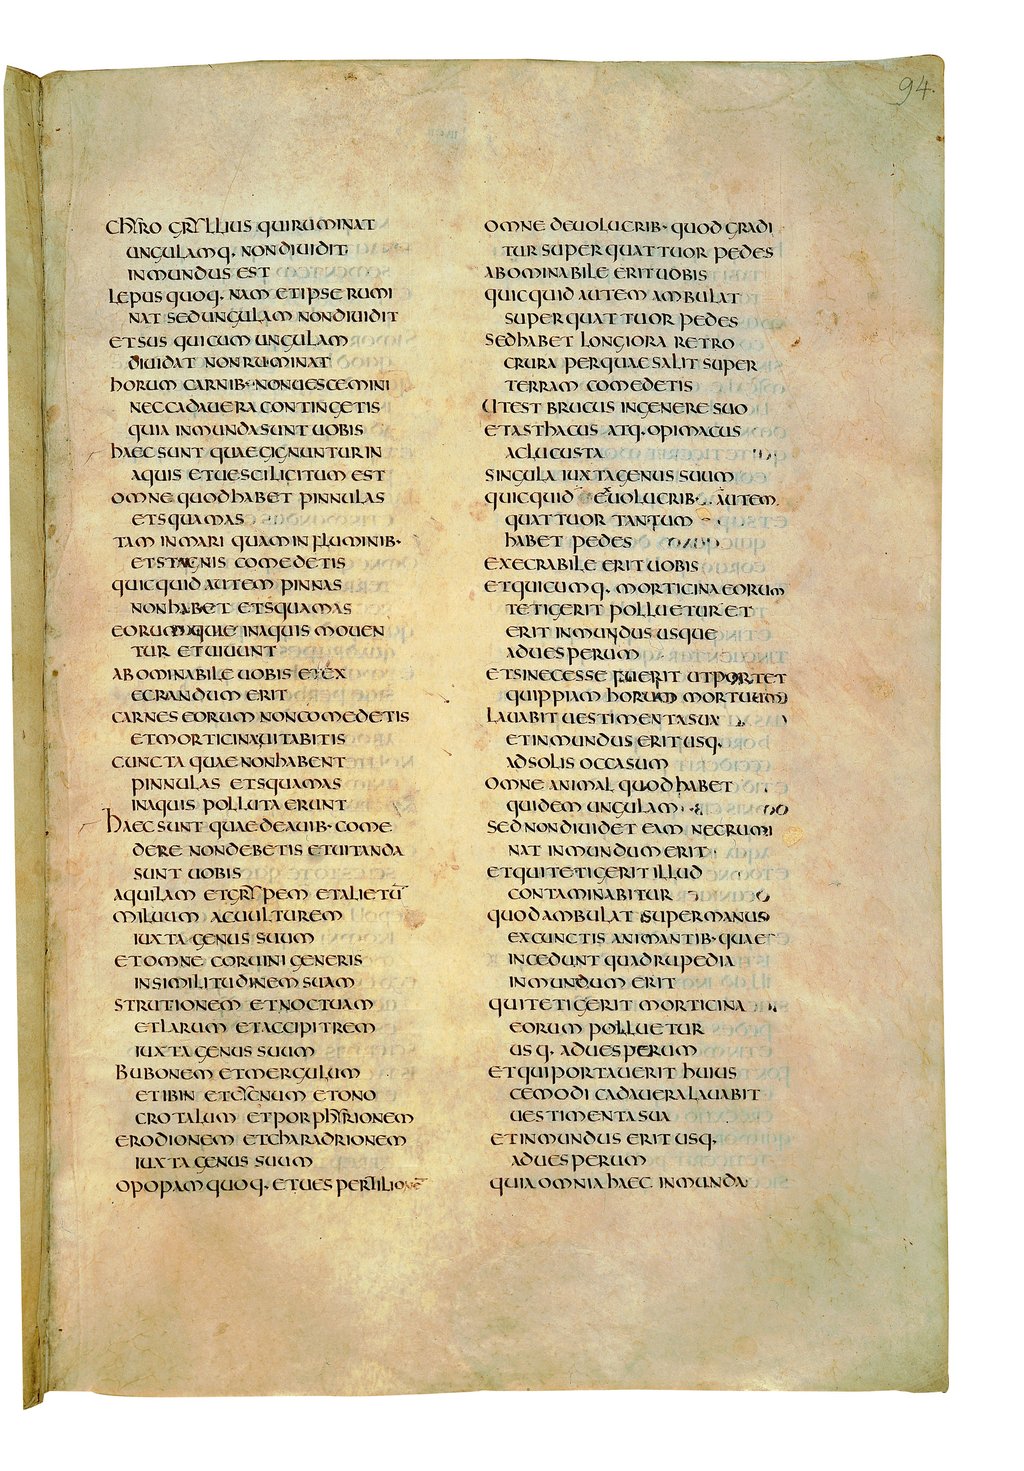 94.
CHYROGRYLLIUS QUI RUMINAT
UNGULAMQ· NON DIUIDIT
INMUNDUS EST
LEPUS QUOQ· NAM ET IPSE RUMI
NAT SED UNGULAM NON DIUIDIT
ET SUS QUI CUM UNGULAM
DIUIDAT NON RUMINAT
HORUM CARNIB· NON UESCEMINI
NEC CADAUERA CONTINGETIS
QUIA INMUNDA SUNT UOBIS
HAEC SUNT QUAE GIGNUNTUR IN
AQUIS ET UESCI LICITUM EST
OMNE QUOD HABET PINNULAS
ET SQUAMAS
TAM IN MARI QUAM IN FLUMINIB·
ET STAGNIS COMEDETIS
QUICQUID AUTEM PINNAS
NON HABET ET SQUAMAS
EORUM QUAE IN AQUIS MOUEN
TUR ET UIUUNT
ABOMINABILE UOBIS ET EX
ECRANDUM ERIT
CARNES EORUM NON COMEDETIS
ET MORTICINA UITABITIS
CUNCTA QUAE NON HABENT
PINNULAS ET SQUAMAS
IN AQUIS POLLUTA ERUNT
HAEC SUNT QUAE DE AUIB· COME
DERE NON DEBETIS ET UITANDA
SUNT UOBIS
AQUILAM ET GRYPEM ET ALIETŪ
MILUUM AC UULTUREM
IUXTA GENUS SUUM
ET OMNE CORUINI GENERIS
IN SIMILITUDINEM SUAM
STRUTIONEM ET NOCTUAM
ET LARUM ET ACCIPITREM
IUXTA GENUS SUUM
BUBONEM ET MERGULUM
ET IBIN ET CICNUM ET ONO
CROTALUM ET PORPHYRIONEM
ERODIONEM ET CHARADRIONEM
IUXTA GENUS SUUM
OPOPAM QUOQ· ET UESPERTILIONĒ
OMNE DE UOLUCRIB· QUOD GRADI
TUR SUPER QUATTUOR PEDES
ABOMINABILE ERIT UOBIS
QUICQUID AUTEM AMBULAT
SUPER QUATTUOR PEDES
SED HABET LONGIORA RETRO
CRURA PER QUAE SALIT SUPER
TERRAM COMEDETIS
UT EST BRUCUS IN GENERE SUO
ET ASTHACUS ATQ· OPIMACUS
AC LUCUSTA
SINGULA IUXTA GENUS SUUM
QUICQUID EX UOLUCRIB· AUTEM
QUATTUOR TANTUM
HABET PEDES
EXECRABILE ERIT UOBIS
ET QUICUMQ· MORTICINA EORUM
TETIGERIT POLLUETUR ET
ERIT INMUNDUS USQUE
AD UESPERUM
ET SI NECESSE FUERIT UT PORTET
QUIPPIAM HORUM MORTUUM
LAUABIT UESTIMENTA SUA
ET INMUNDUS ERIT USQ·
AD SOLIS OCCASUM
OMNE ANIMAL QUOD HABET
QUIDEM UNGULAM
SED NON DIUIDET EAM NEC RUMI
NAT INMUNDUM ERIT
ET QUI TETIGERIT ILLUD
CONTAMINABITUR
QUOD AMBULAT SUPER MANUS
EX CUNCTIS ANIMANTIB· QUAE
INCEDUNT QUADRUPEDIA
INMUNDUM ERIT
QUI TETIGERIT MORTICINA
EORUM POLLUETUR
USQ· AD UESPERUM
ET QUI PORTAUERIT HUIUS
CEMODI CADAUERA LAUABIT
UESTIMENTA SUA
ET INMUNDUS ERIT USQ·
AD UESPERUM
QUIA OMNIA HAEC INMUNDA